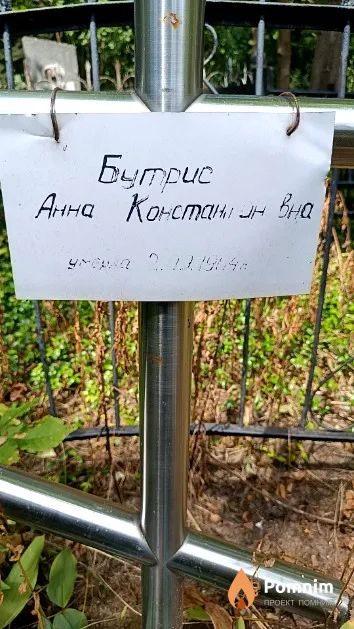 Бутрис
Анна Константиновна
умерла
Pomnim
ПРОЕКТ ПОМНИМ